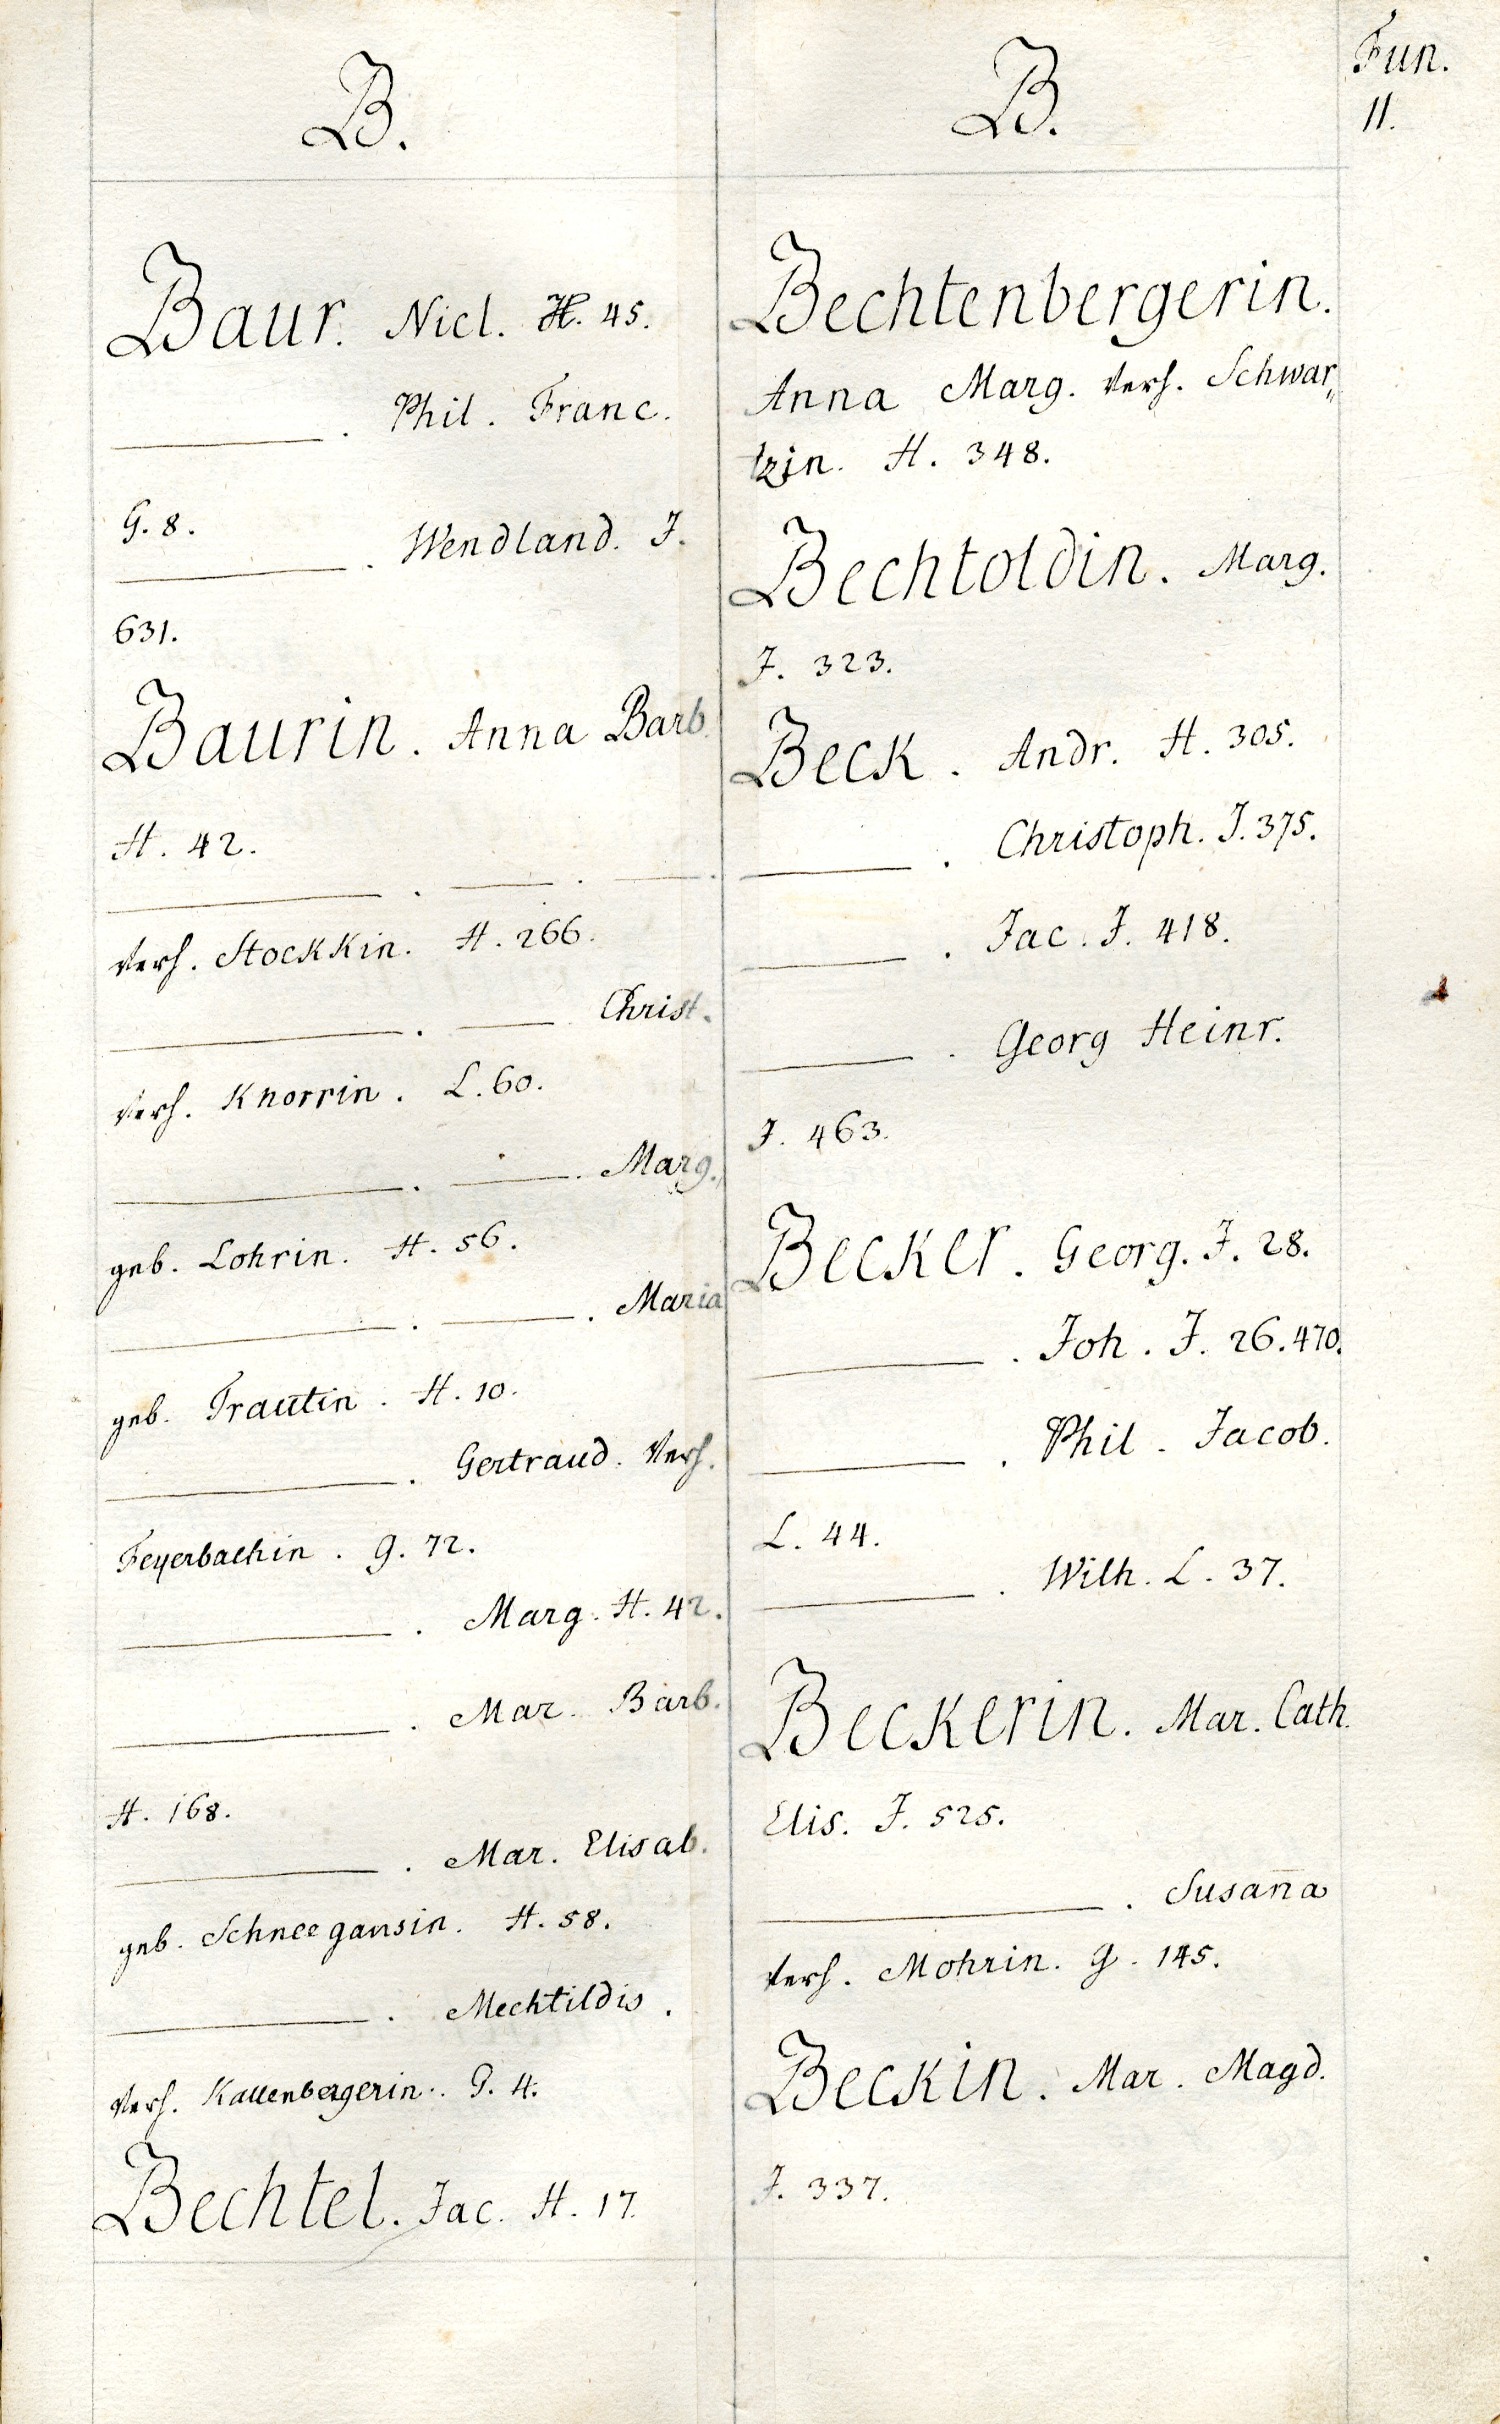 B.
Baur. Nicl. H. 45.
———. Phil. Franc.
G. 8.
———. Wendland. J.
631.
Baurin. Anna Barb.
H. 42.
———. ———. ———.
verh. Stockkin. H. 266.
———. ——— Christ.
verh. Knorrin. L. 60.
———. ———. Marg.
geb. Lohrin. H. 56.
———. ———. Maria
geb. Trautin. H. 10.
———. Gertraud. verh.
Feyerbachin. G. 72.
———. Marg. H. 42.
———. Mar. Barb.
H. 168.
———. Mar. Elisab.
geb. Schneegansin. H. 58.
———. Mechtildis.
verh. Kallenbergerin. G. 4.
Bechtel. Jac. H. 17.
B.
Bechtenbergerin.
Anna Marg. verh. Schwar„
tzin. H. 348.
Bechtoldin. Marg.
J. 323.
Beck. Andr. H. 305.
———. Christoph. J. 375.
———. Jac. J. 418.
———. Georg Heinr.
J. 463.
Becker. Georg. J. 28.
———. Joh. J. 26. 470.
———. Phil. Jacob.
L. 44.
———. Wilh. L. 37.
Beckerin. Mar. Cath.
Elis. J. 525.
———. Susan̄a
verh. Mohrin. G. 145.
Beckin. Mar. Magd.
J. 337.
Fun.
11.